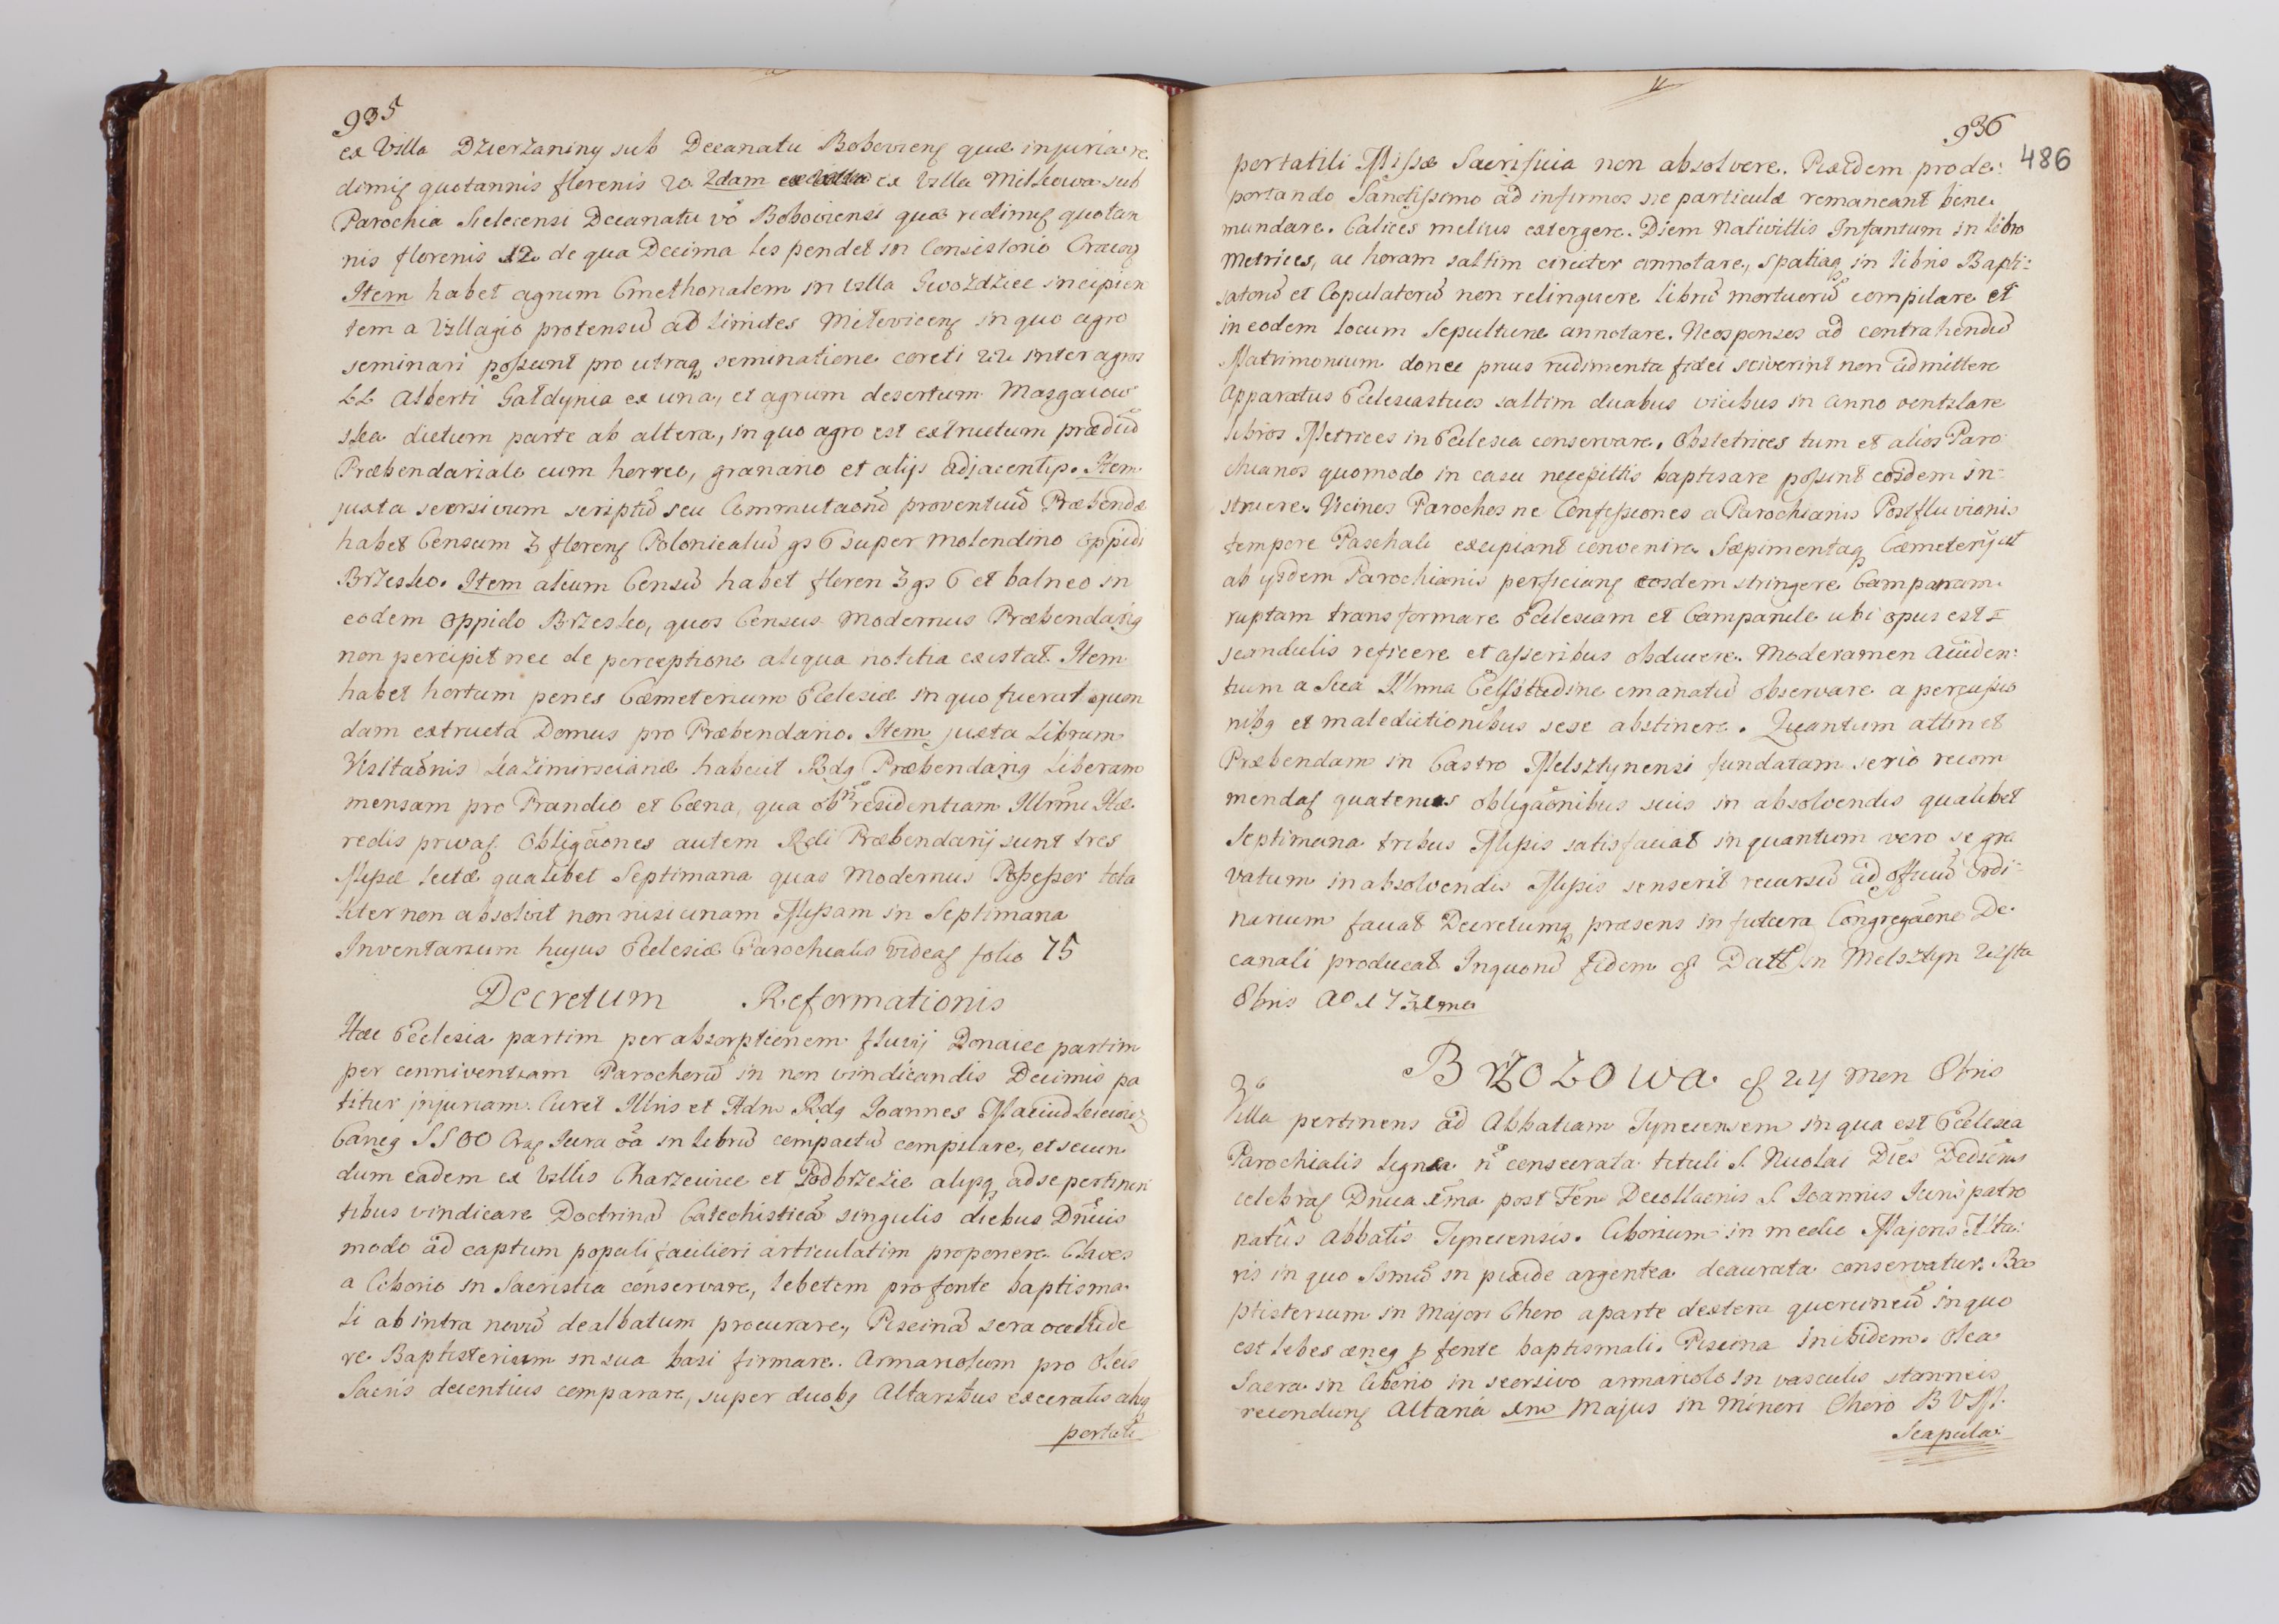 935
ex Villa Dzierzaniny sub Decanatu Boboviens quæ injuria re
dimis quotannis florenis 20. 2dam ex Villa Milkowa sub
Parochia Sielecensi Decanatu vo Boboviensi quæ redimis quotan
nis florenis 12. de qua Decima Lis pendet in Consistorio Cracov
Item habet agrum Cmethonalem in Villa Gwozdziec incipien
tem a Villagio protensu ad Limites Meleviens in quo agro
seminari possunt pro utraq seminatione coreti 22 inter agros
LL Alberti Galdynia ex una, et agrum desertum Masgaiow
ska dictum parte ab altera, in quo agro est extructum prædiu
Præbendariale cum horreo, granario et alijs adjacentijs. Item
juxta seorsivum scriptu seu Commutaonu proventuu Præbendæ
habet Censum 3 florens Polonicaliu gs 6 super molendino oppidi
Brzesko. Item alium Censu habet floren 3 gs 6 et balneo in
eodem oppido Brzesko, quos Census Modernus Præbendarig
non percipit nec de perceptione aliqua notitia existat. Item
habet hortum penes Cæmeterium Ecclesiæ in quo fuerat quon
dam extructa Domus pro Præbendario. Item juxta Librum
Visitaonis Kazimirscianæ habeat Rdg Præbendarig Liberam
mensam pro Prandio et Cæna, qua ob residentiam Illrmi Hæ
redis privas. Obligaones autem Rdi Præbendarij sunt tres
Missæ lectæ qualibet Septimana quas Modernus Possessor tota
liter non absolvit non nisi unam Missam in Septimana
Inventarium hujus Ecclesiæ Parochialis videas folio 75
Decretum Reformationis
Hæc Ecclesia partim per absorptionem fluvij Donaiec partim
per conniventiam Parochoru in non vindicandis Decimis pa
titur injuriam. Curet Illris et Adm Rdg Joannes
Caneg SS OO Cras Jura oa in Libru compactu compilare, et secun
dum eadem ex Villis Charzewice et Podbrzezie alijsq ad se pertinen
tibus vindicare Doctrina Catechistica singulis diebus Dnicis
modo ad captum populi faciliori articulatim proponere. Claves
a Ciborio in Sacristia conservare, lebetem pro fonte baptisma
li ab intra novu dealbatum procurare, Piscina sera occlude
re. Baptisterium in sua basi firmare. Armariolum pro Oleis
Sacris decentius comparare, super duobg Altaribus execratis absq
portati
936
486
portatili Missæ Sacrificia non absolvere. Pixidem pro de:
portando Sanctissimo ad infirmos ne particulæ remaneant bene
mundare. Calices melius extergere. Diem Nativittis Infantum in libro
Metrices, ac horam saltim circiter annotare, spatiaq in libris Bapti:
satoru et Copulatoru non relinquere libru mortuoru compilare et
in eodem locum Sepulturæ annotare. Neosponsos ad contrahendu
Matrimonium donec prius rudimenta fidei sciverint non admittere
Apparatus Ecclesiasticos saltim duabus vicibus in anno ventilare
libros Metrices in Ecclesia conservare. Obstetrices tum et alios Paro
chianos quomodo in casu necessittis baptisare possint eosdem in:
struere. Vicinos Parochos ne Confessiones a Parochianis Postfluvianis
tempore Paschali excipiant convenire. Sæpimentaq Cæmeterij ut
ab ijsdem Parochianis perficians eosdem stringere Campanam
ruptam transformare Ecclesiam et Campanile ubi opus est
scandulis reficere et asseribus obducere. Moderamen
tum a Sua Illrma Celsitudine emanatu observare a percussio
nibq et maledictionibus sese abstinere. Quantum attinet
Præbendam in Castro Melsztynensi fundatam serio recom
mendas quatenus obligaonibus suis in absolvendis qualibet
Septimana tribus Missis satisfaciat in quantum vero se gra
vatum in absolvendis Missis senserit recursu ad Officiu Ordi:
narium faciat Decretumq præsens in futura Congregaone De
canali producat. In quoru fidem Datt in Melsztyn
8bris Ao 173
BRZOZOWA 24 Men 8bris
Villa pertinens ad Abbatiam Tynecensem in qua est Ecclesia
Parochialis lignea no consecrata tituli S. Nicolai Dies Dedicaonis
celebras Dnica ma post Fem Decollaonis S. Joannis Juris patro
natus Abbatis Tynecensis. Ciborium in medio Majoris Alta:
ris in quo Ssmu in pixide argentea deaurata conservatur. Ba
ptisterium in Majori Choro a parte dextera quercineu in quo
est lebes æneg p fonte baptismali. Piscina inibidem. Olea
Sacra in Ciborio in seorsivo armariolo in vasculis stanneis
recenduns Altaria Majus in Minori Choro B V M.
Scapula: